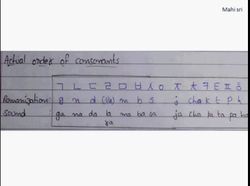 Mahi sri
Actual order of consonants
ㄱ ㄴ ㄷ ㄹ ㅁ ㅂ ㅅ ㅇ ㅈ ㅊ ㅋ ㅌ ㅍ ㅎ
Romanization: g n d (r/l) m b s j ch k t p h
Sound ga na da la ma ba sa ja cha ka ta pa ha
ra